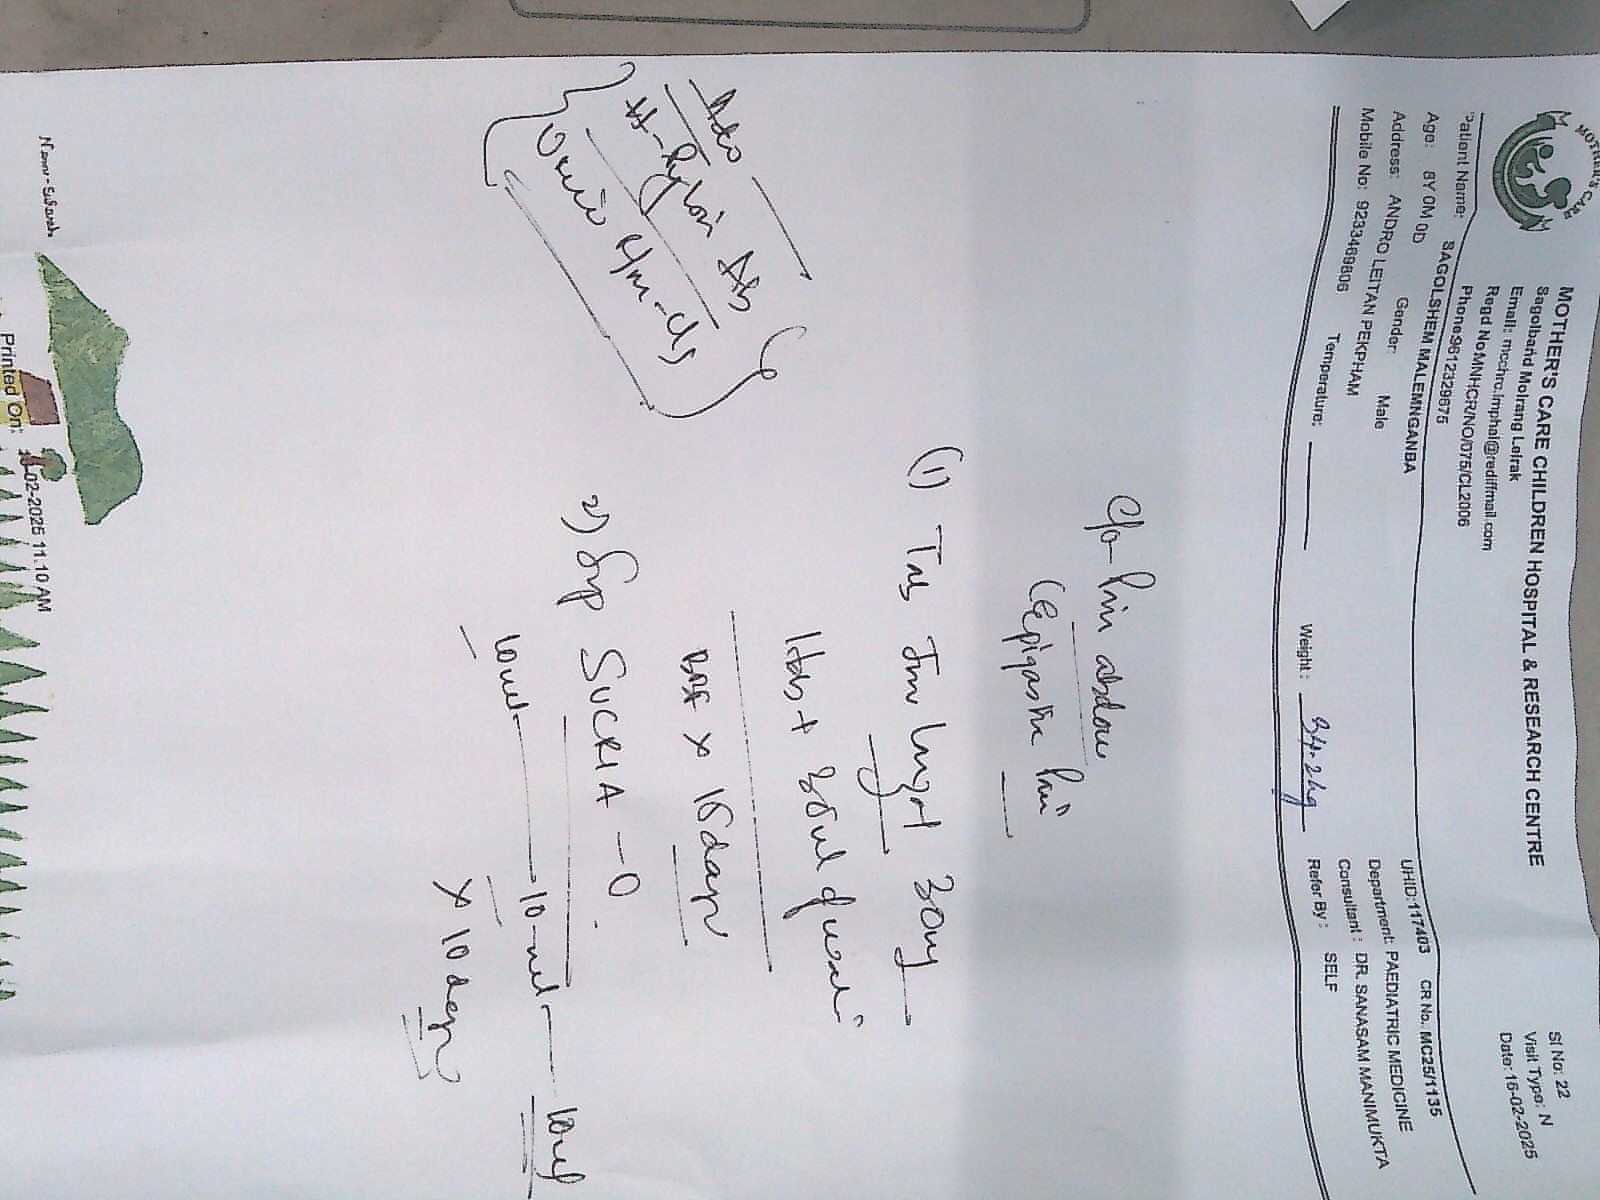 MOTHER'S CARE
MOTHER'S CARE CHILDREN HOSPITAL & RESEARCH CENTRE
Sagolband Moirang Leirak
Email: mcchrc.imphal@rediffmail.com
Regd No:MNHCR/NO/075/CL2006
Phone:9612329675
Sl No: 22
Visit Type: N
Date:16-02-2025
Patient Name: SAGOLSHEM MALEMNGANBA
UHID:117403 CR No.: MC25/1135
Age: 8Y 0M 0D Gender: Male
Department: PAEDIATRIC MEDICINE
Address: ANDRO LEITAN PEKPHAM
Consultant : DR. SANASAM MANIMUKTA
Mobile No: 9233469806 Temperature: Weight : 34.2kg Refer By : SELF
C/o- Pain abdom
(Epigastric Pain
(1) Tab 30mg
1tab + 30ml of
BBF x 15days
2) Syp SUCRIA-O.
10ml 10-ml 10ml
x 10days
Adv
H-Pylori
R/M-C/s
Printed On: -02-2025 11.10AM